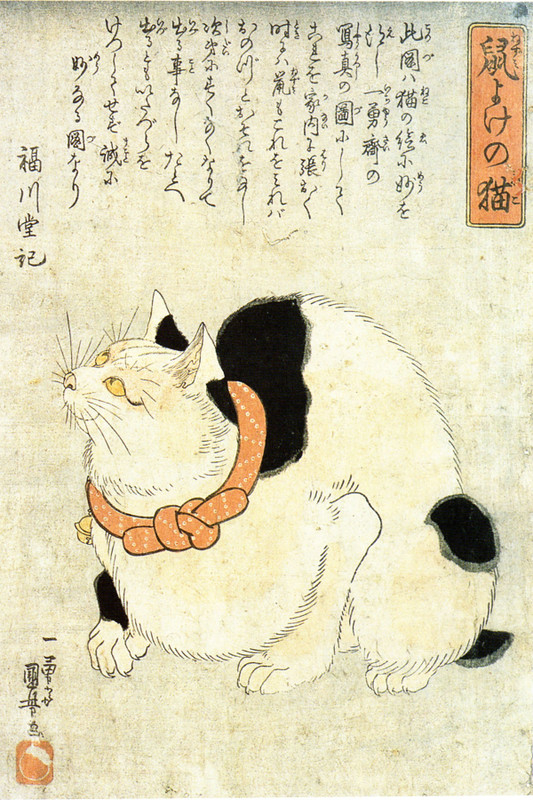 鼠よけの猫
此図ハ猫の絵に妙を
得し一勇齋の
寫真の圖にして
これを家内に張おく
時にハ鼠もこれをみれバ
おのづとおそれをなし
次第にすくなくなりて
出る事なしたとへ
出るともいたづらを
けつしてせず誠に
妙なる図なり
福川堂記
一勇齋
國芳画